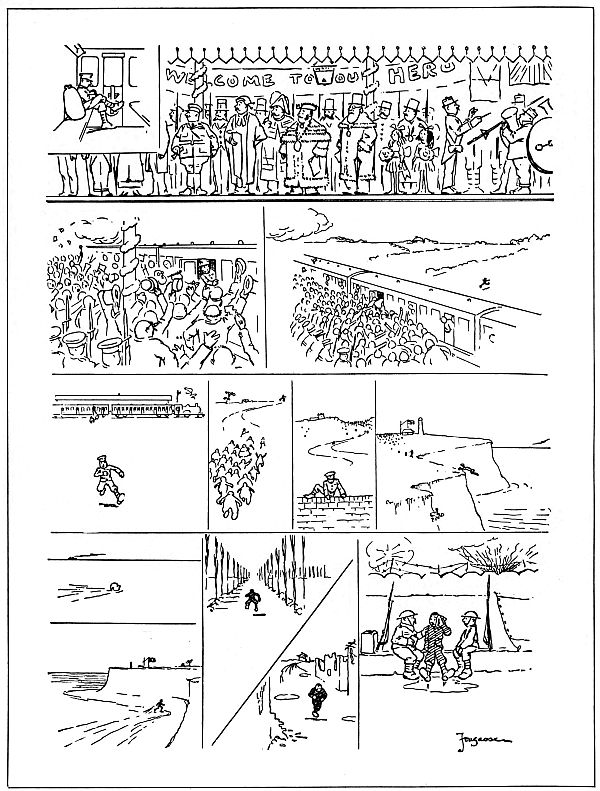 WELCOME TO OUR HERO
Fougasse